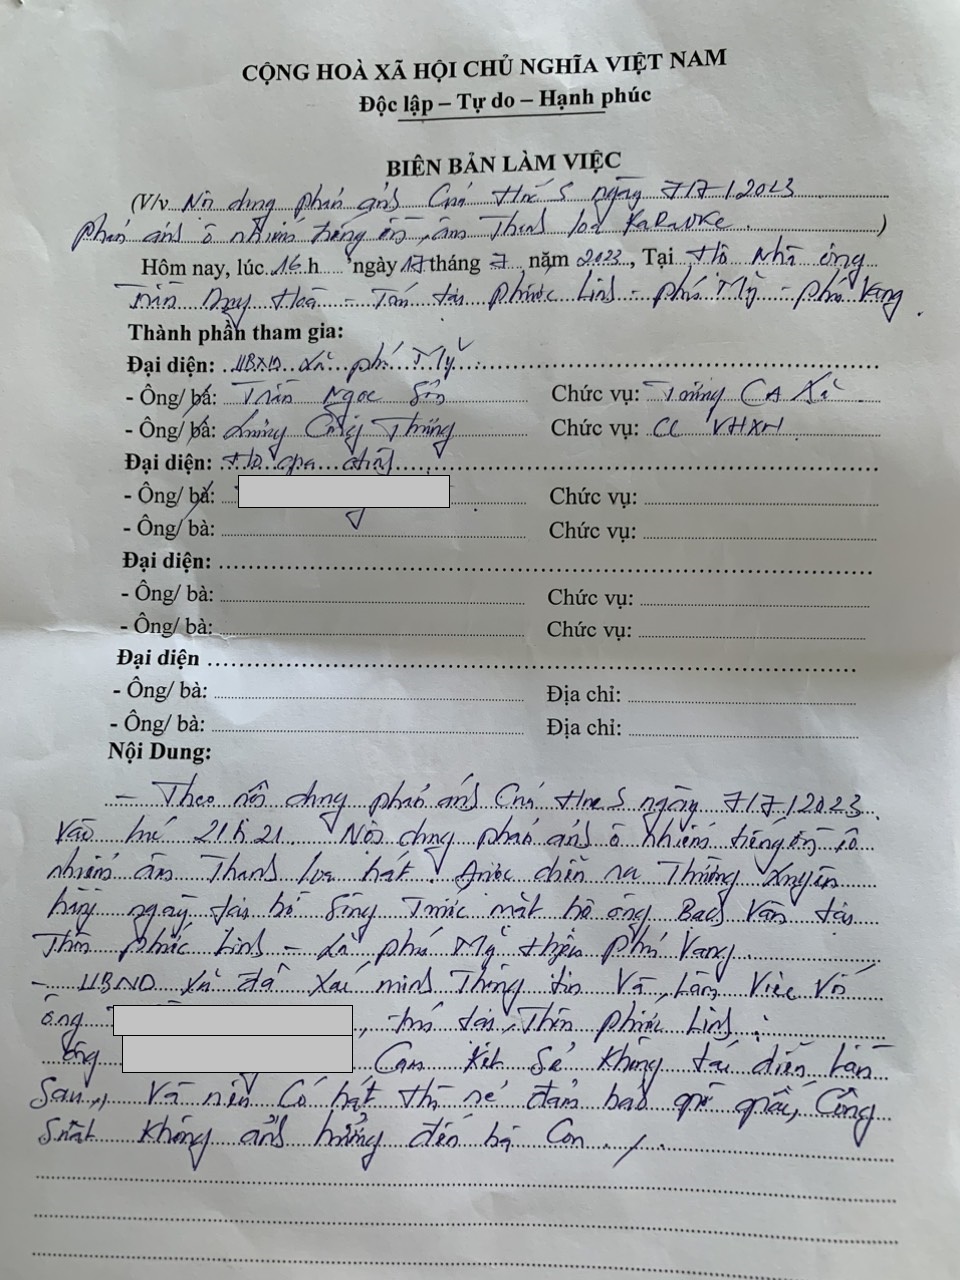 CỘNG HOÀ XÃ HỘI CHỦ NGHĨA VIỆT NAM
Độc lập – Tự do – Hạnh phúc
BIÊN BẢN LÀM VIỆC
(V/v Nội dung phản ánh Của Hue S ngày 7/7/2023
phản ánh ô nhiễm tiếng ồn, âm Thanh loa Karaoke.)
Hôm nay, lúc 16h ngày 17 tháng 7 năm 2023, Tại Hộ Nhà ông
Trần Duy Hoà - Tại Phước Linh - Phú Mỹ - Phú Vang.
Thành phần tham gia:
Đại diện: UBND Xã Phú Mỹ
- Ông/ bà: Trần Ngọc Sơn Chức vụ: Trưởng CA Xã
- Ông/ bà: Công Chức vụ: CC VHXH
Đại diện: Hộ gia đình
- Ông/ bà: Chức vụ:
- Ông/ bà: Chức vụ:
Đại diện:
- Ông/ bà: Chức vụ:
- Ông/ bà: Chức vụ:
Đại diện
- Ông/ bà: Địa chỉ:
- Ông/ bà: Địa chỉ:
Nội Dung:
- Theo nội dung phản ánh Của Hue S ngày 7/7/2023
Vào lúc 21h21. Nội dung phản ánh ô nhiễm tiếng ồn, ô
nhiễm âm Thanh loa hát. Được diễn ra Thường Xuyên
hằng ngày tại bờ Sông Trước mặt hộ ông Vân tại
Thôn Phước Linh - Xã Phú Mỹ huyện Phú Vang.
- UBND Xã đã Xác minh Thông tin Và Làm Việc Với
ông , trú tại Thôn Phước Linh.
Ông Cam kết Sẽ không tái diễn lần
Sau, Và nếu Có hát thì sẽ đảm bảo giờ giấc, Công
Suất không ảnh hưởng đến bà Con ./.